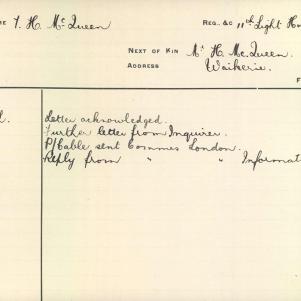 ME T. H. McQueen REG. &C 11th Light Ho
NEXT OF KIN Mr H. McQueen.
ADDRESS Waikerie.
F
l. Letter acknowledged.
Further letter from Inquirer.
P/Cable sent Commes London.
Reply from " " Informat